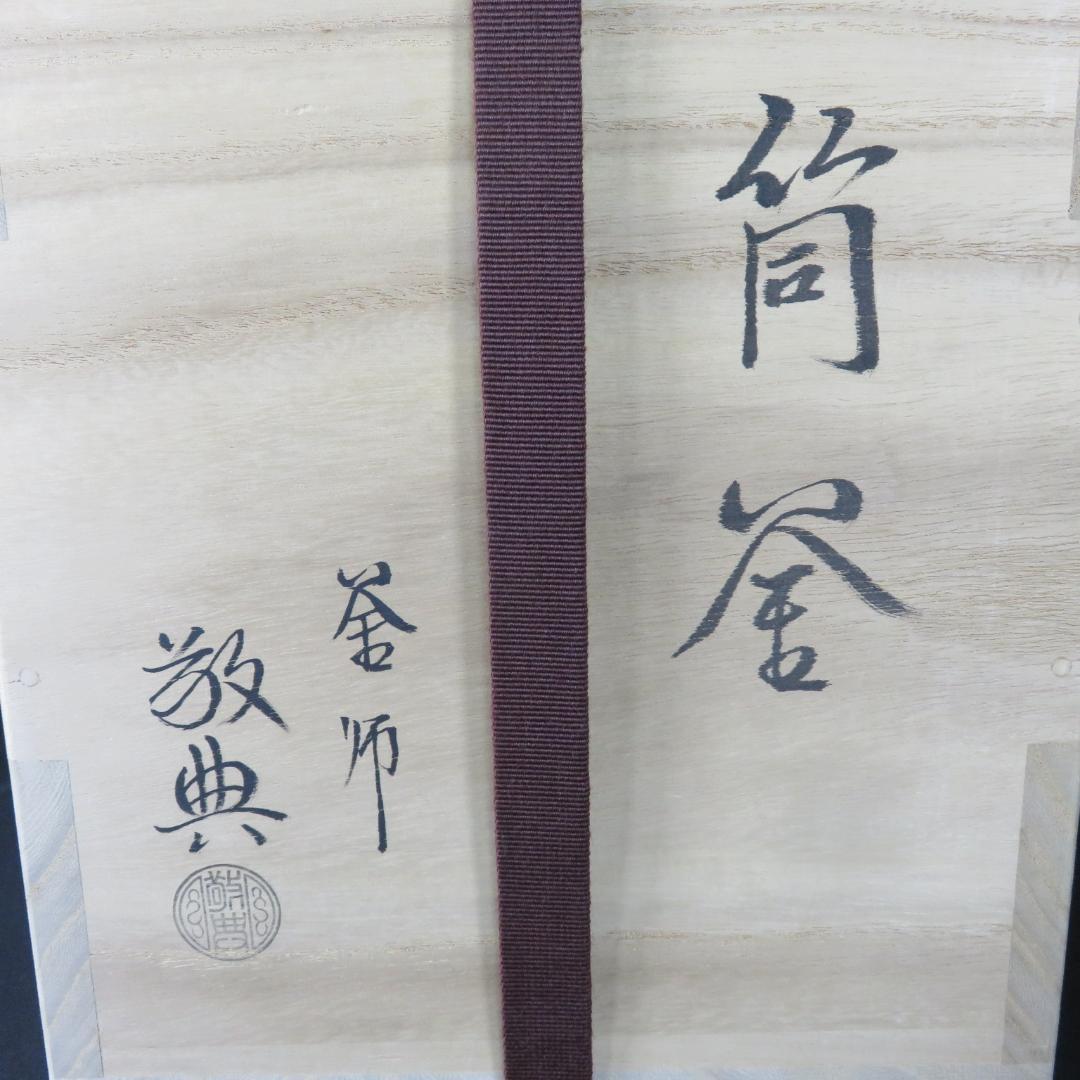 筒釜
釜師
敬典
敬典